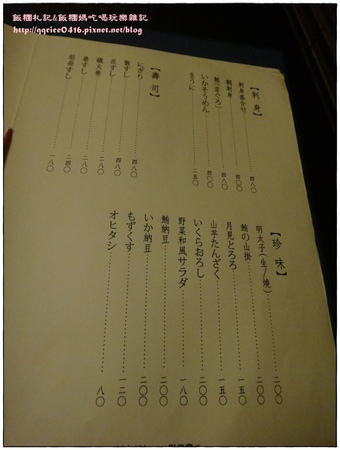 飯糰札記&飯糰媽吃喝玩樂雜記
http://qqrice0416.pixnet.net/blog
【刺身】
刺身盛合せ 四八〇
鯛刺身 四八〇
いかそうめん 二〇〇
生うに 二五〇
【壽司】
にぎり 四八〇
散すし 四八〇
花すし 二八〇
鐵火巻 二八〇
巻すし 二四〇
稻荷すし 一八〇
【珍味】
明太子(生/燒) 二〇〇
鮪の山掛 二〇〇
月見とろろ 一五〇
山芋たんざく 一五〇
いくらおろし 二〇〇
野菜和風サラダ 一八〇
鮪納豆 二〇〇
いか納豆 二〇〇
もずくす 一二〇
オヒタシ 八〇